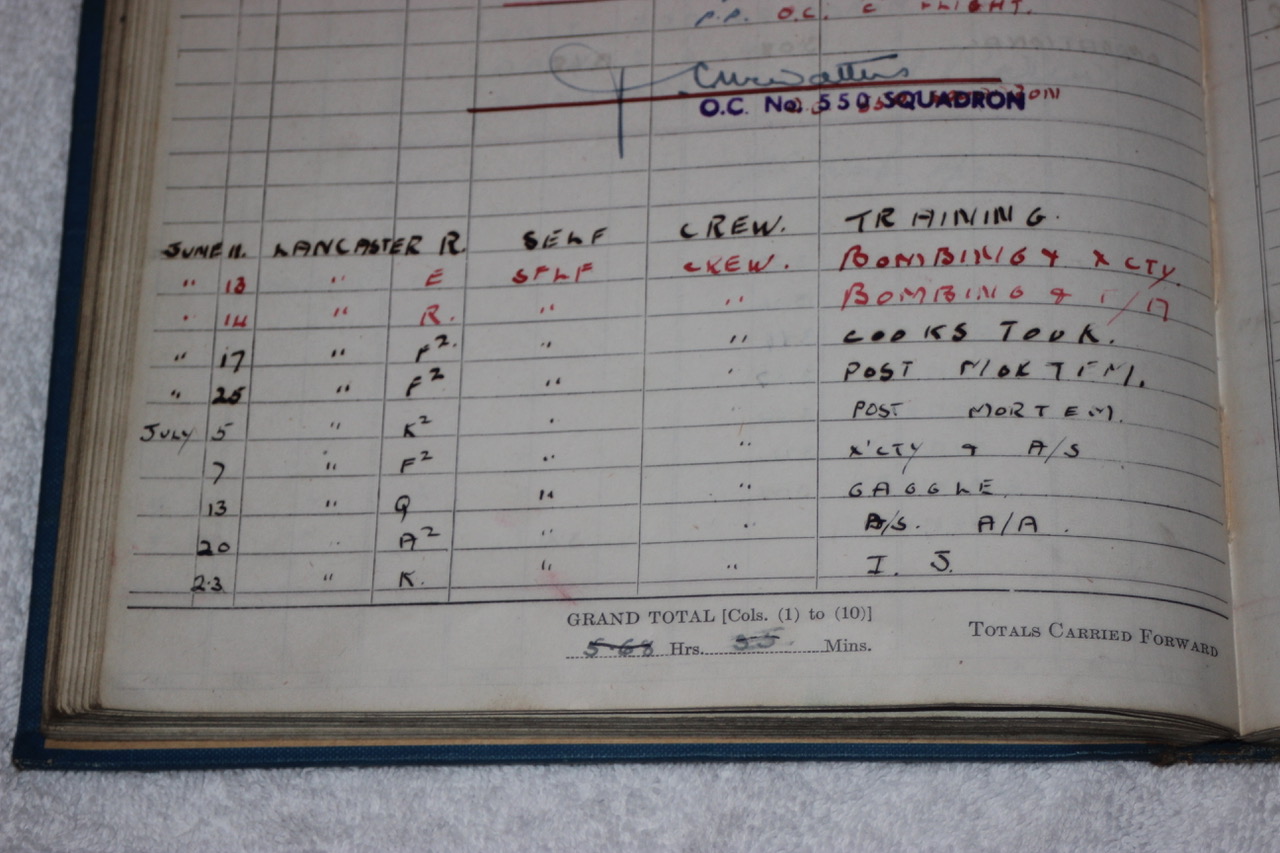 P.P. O.C. C FLIGHT.
O.C. No. 550 SQUADRON
JUNE 11. LANCASTER R. SELF CREW. TRAINING.
" 13 " E SELF CREW. BOMBING & X CTY.
" 14 " R. " " BOMBING &
" 17 " F2. " " COOKS TOUR.
" 25 " F2 " " POST MORTEM.
JULY 5 " K2 " " POST MORTEM.
7 " F2 " " X'CTY & A/S
13 " Q " " GAGGLE
20 " A2 " " A/S. A/A.
23 " K. " " I. J.
GRAND TOTAL [Cols. (1) to (10)]
568 Hrs. 55 Mins.
TOTALS CARRIED FORWARD